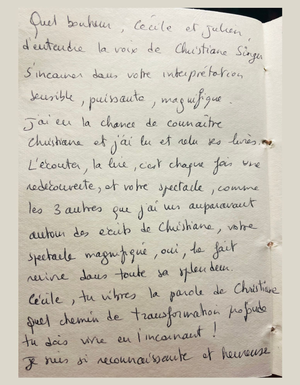 Quel bonheur, Cécile et Julien,
d'entendre la voix de Christiane Singer
s'incarner dans votre interprétation
sensible, puissante, magnifique.
J'ai eu la chance de connaître
Christiane et j'ai lu et relu ses livres.
L'écouter, la lire, c'est chaque fois une
redécouverte, et votre spectacle, comme
les 3 autres que j'ai vus auparavant
autour des écrits de Christiane, votre
spectacle magnifique, oui, la fait
revivre dans toute sa splendeur.
Cécile, tu vibres la parole de Christiane
quel chemin de transformation profonde
tu dois vivre en l'incarnant !
Je suis si reconnaissante et heureuse